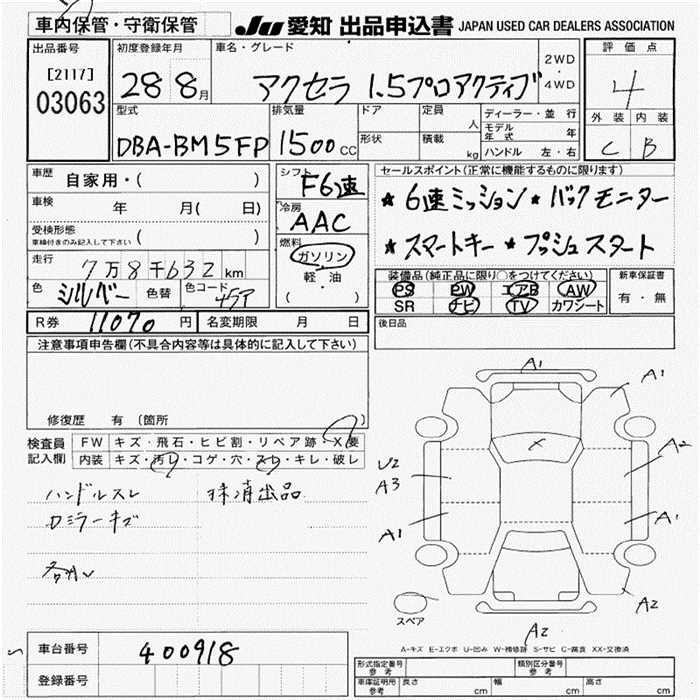 車内保管・守衛保管 JU 愛知 出品申込書 JAPAN USED CAR DEALERS ASSOCIATION
出品番号 初度登録年月 車名・グレード 2WD・4WD 評価点
[2117] 03063 28 8月 アクセラ 1.5プロアクティブ 4
型式 排気量 ドア 定員 人 ディーラー・並行 外装 内装
DBA-BM5FP 1500cc 形状 積載 kg モデル年式 年 C B
ハンドル 左・右
車歴 自家用・( ) シフト F6速 セールスポイント(正常に機能するものに限ります)
車検 年 月( 日) 冷房 AAC ★6速ミッション ★バックモニター
受検形態 車検付きのみ記入して下さい ( ) 燃料 ガソリン ★スマートキー ★プッシュスタート
走行 7万8千632km 軽・油 装備品(純正品に限り○をつけてください) 新車保証書
色 シルバー 色替 色コード 45P ( ) PS PW エアB AW 有・無
SR ナビ TV カワシート
R券 11070円 名変期限 月 日 後日品
注意事項申告欄(不具合内容等は具体的に記入して下さい)
修復歴 有(箇所 )
検査員記入欄 FW キズ・飛石・ヒビ割・リペア跡・X要
内装 キズ・汚レ・コゲ・穴・スレ・キレ・破レ
ハンドルスレ 抹消出品
ロミラーキズ
A1 A1
X
U2 A3 A2
A1 A1
A2
スペア
A2
A-キズ E-エクボ U-凹み W-補修跡 S-サビ C-腐食 XX-交換済
車台番号 400918 形式指定番号 参考 類別区分番号 参考
登録番号 車庫証明用 参考 長さ cm 幅 cm 高さ cm